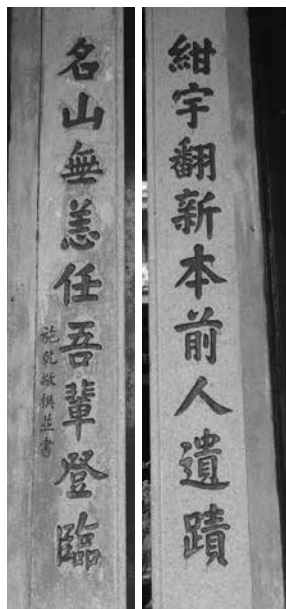 紺宇翻新本前人遺蹟
名山無恙任吾輩登臨
施乾撰並書